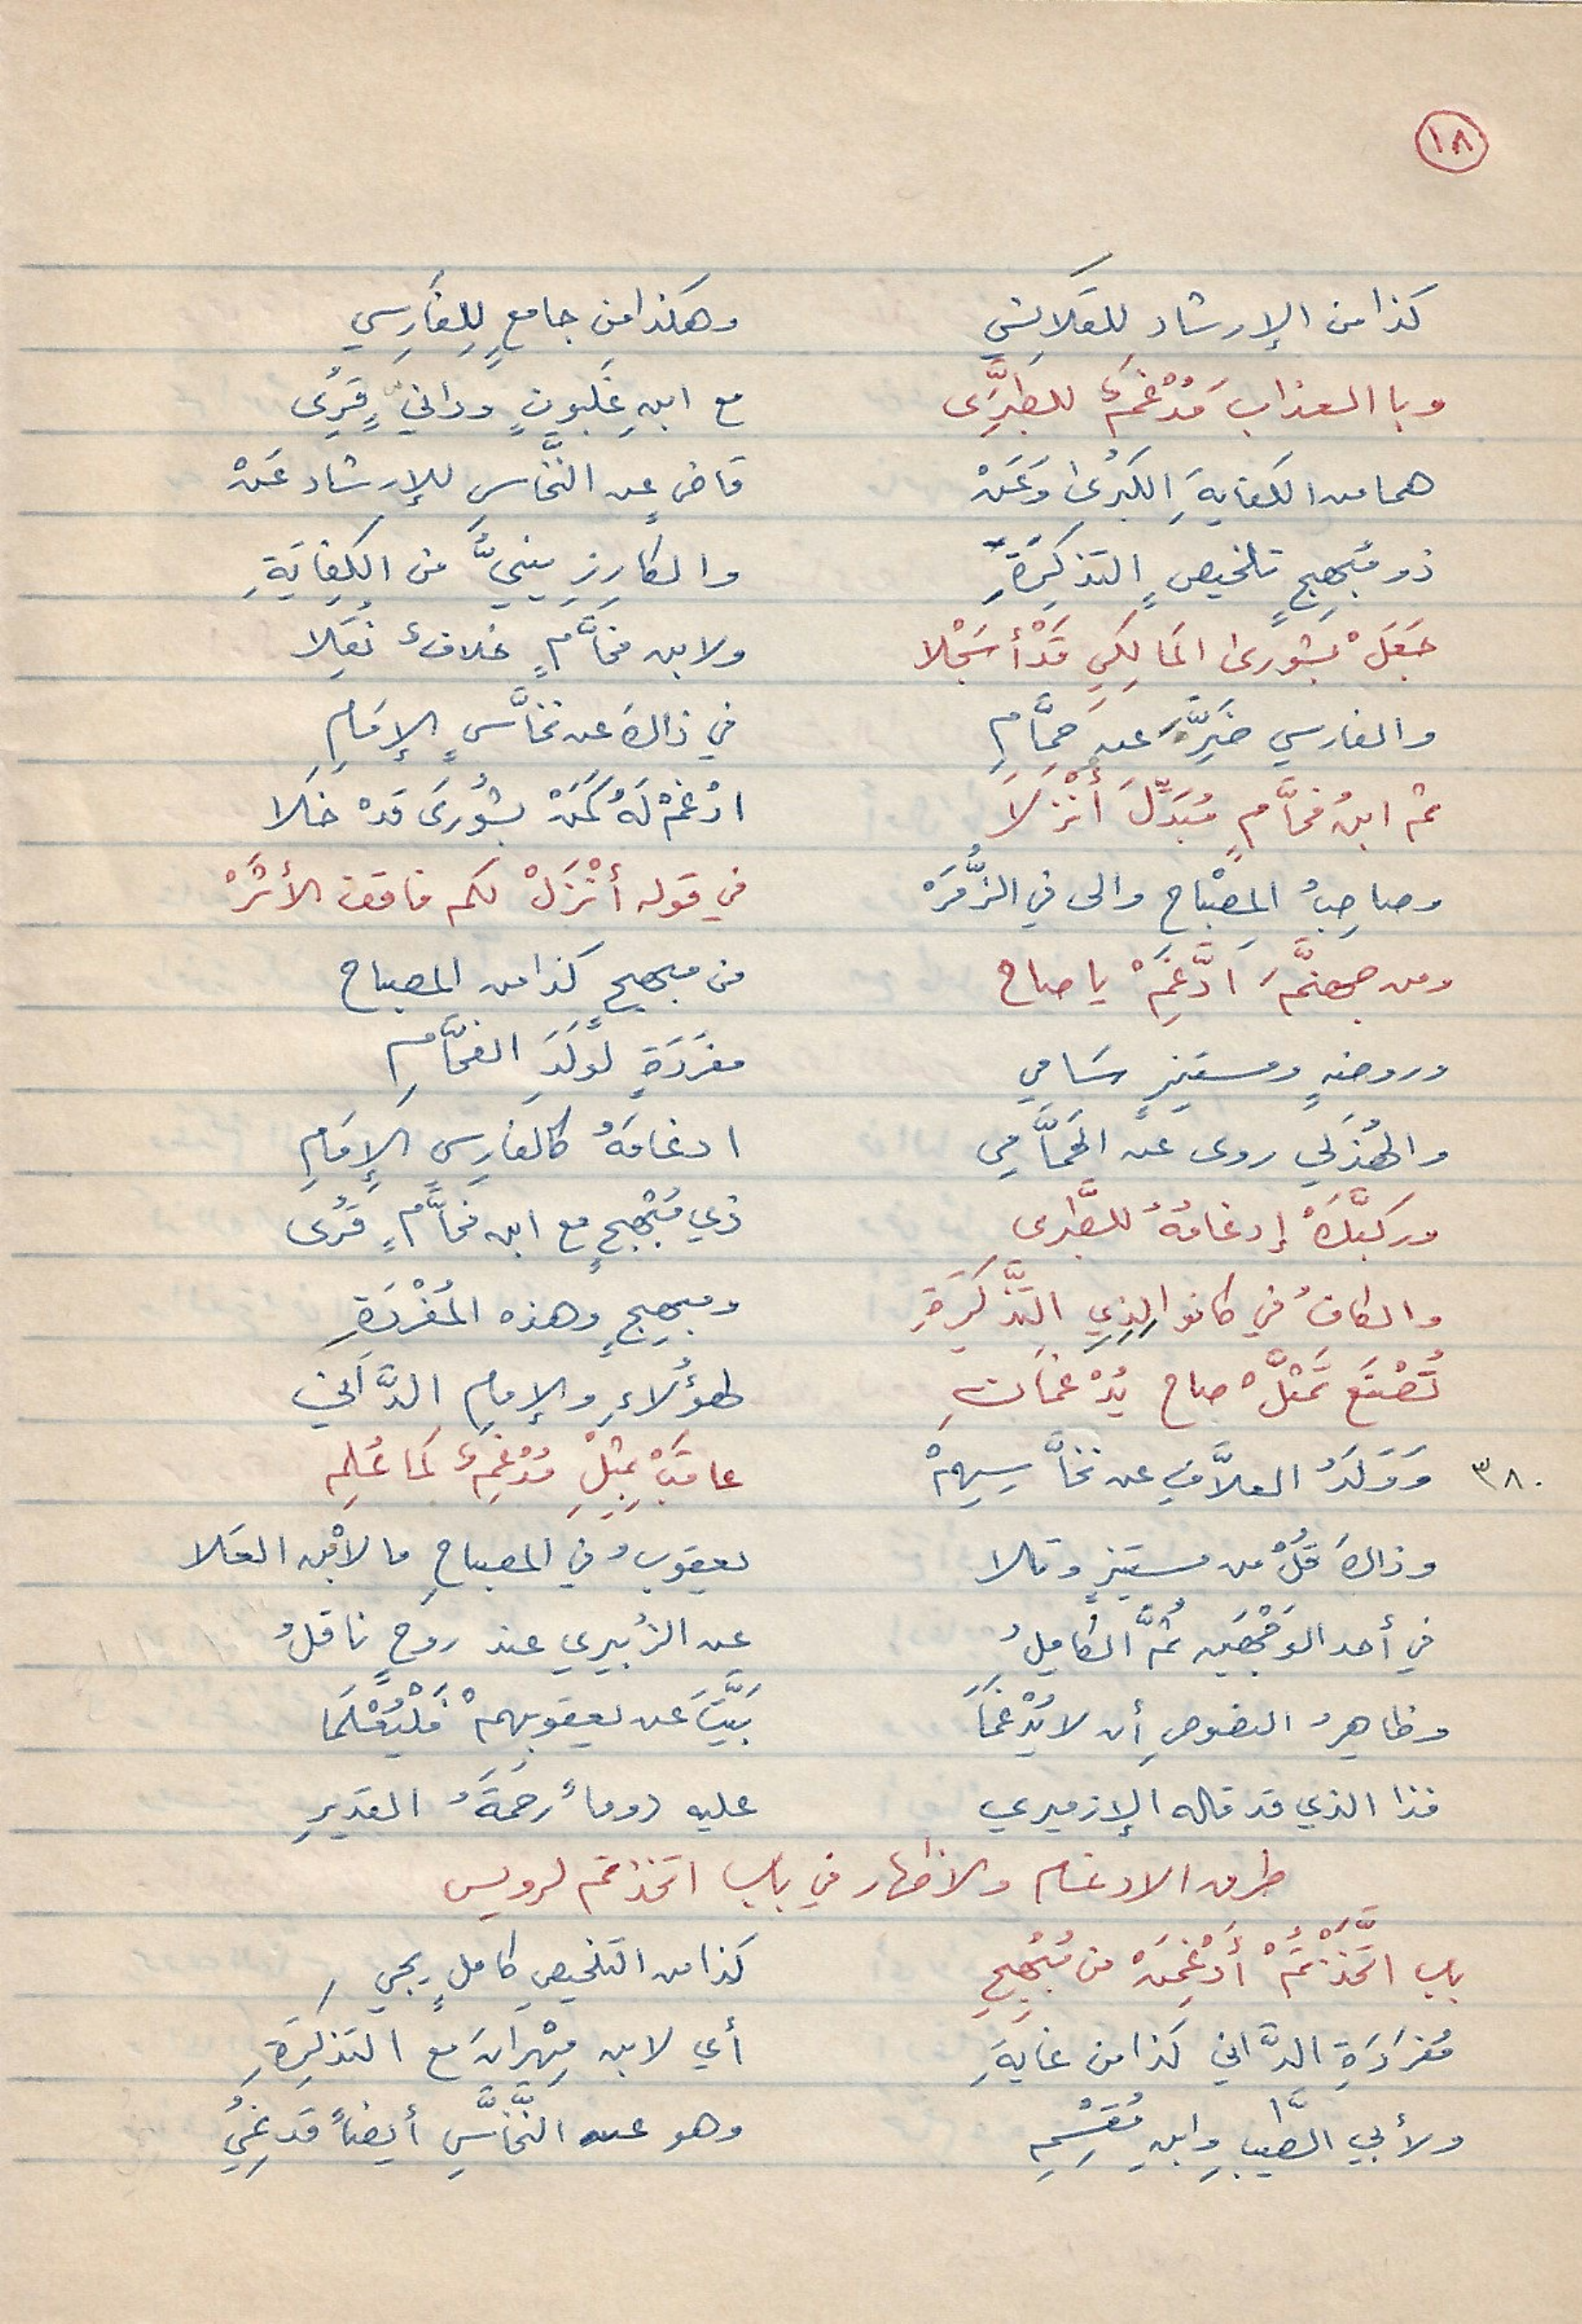 ١٨
كذا من الإرشاد للقلانسي وهكذا من جامعٍ للفارسي
وبا العذاب مُدْغمٌ للطبَرَى مع ابنِ غلبونٍ ودانيٍّ قُرِى
هما من الكفايةِ الكُبرى وَعَنْ قاضٍ عن النَّخاسِ للإرشاد عَنْ
ذو مُبهجٍ تلخيصٍ التذكِرَةِ والكارزينيُّ من الكِفايَةِ
جَعَلْ بشورى المالكي قَدْ أسجلا ولابن فحَّامٍ خلافٌ نُقِلا
والفارسي خَيَّرَ عن حمَّامِ في ذاكَ عن نخَّاسٍ الإمَامِ
ثم ابنُ فحَّامٍ مُبَدِّلَ أَنْزَلاَ ادْغمْ لَهُ كَمَنْ بشُورَى قَدْ خَلا
وصاحِبُ المِصْباحِ والى في الزُّمَرْ في قوله أَنْزَلْ لكم فاقف الأثَرْ
ومن جهنَّمَ ادَّغِمْ يا صاح من مبهجٍ كذا من المصباح
وروضةٍ ومستنيرٍ سَامي مفرَدَةٍ لَوَلَدِ الفحَّامِ
والهُذَلي روى عن الحمَّامي ادغامَهُ كالفارِسيِ الإِمَامِ
وركَّبَكْ إدغامُهُ للطَّبرى ذي مُبْهجٍ مع ابن فحَّامٍ قُرى
والكافُ في كانوا لِذِي التَّذْكِرَةِ ومبهِجٍ وهذه المُفْرَدَةِ
تُصْنَع تَمَثَّلْ صاح يُدْغمَانِ لهؤلاءِ والإمامِ الدَّاني
٣٨٠ وَوَلَدُ العلاَّفِ عن نخَّاسِهِمْ عاقَبْ بمثلِ مُدْغِمٌ كما عُلِم
وذاك قُلْ من مستنيرٍ وتلا يعقوبُ في المصباحِ ما لابْن العَلا
في أحد الوَجْهَين ثمَّ الكاملُ عن الزُبيري عند روحٍ ناقلُ
وظاهرُ النصوصِ أن لا يُدْغمَا بَيَّتَ عن يعقوبِهمْ فَلْيُعْلَمَا
فذا الذي قد قاله الإزميري عليه دوماً رحمَةُ القديرِ
طرق الادغام والاظهار في باب اتخذتم لرويس
باب اتَّخَذْتُمْ أَدْغِمَنْ من مُبْهجِ كذا من التلخيصِ كاملٍ يجي
مُفرَدَةِ الدَّاني كذا من غايةِ أي لابن مِهْرانَ مع التذكِرَةِ
ولأبي الطَّيبِ وابنِ مُقْسِمِ وهو عن النَّخَّاسِ أيضاً قد نُمِي